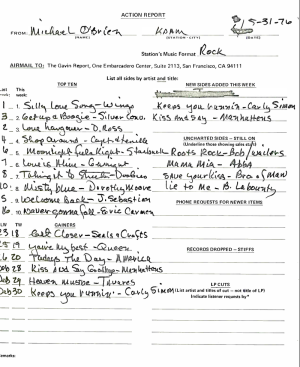 ACTION REPORT
FROM: Michael O'Brien KSAM 5-31-76
(NAME) (STATION - CITY) (DATE)
Station's Music Format Rock
AIRMAIL TO: The Gavin Report, One Embarcadero Center, Suite 2113, San Francisco, CA 94111
List all sides by artist and title:
TOP TEN NEW SIDES ADDED THIS WEEK
1 Silly Love Song - Wings Keeps you runnin - Carly Simon
3 Get up & Boogie - Silver Conv. Kiss And Say - Manhattans
2 Love hangover - D. Ross
4 Shop Around - Capt & Tenille UNCHARTED SIDES - STILL ON
6 Moonlight - Starbuck Roots Rock - Bob/wailers
7 Mama Mia - Abba
8 Taking it to Streets - Doobies Save your Kiss - Bro. of Man
10 Misty blue - Dorothy Moore lie to Me - B.
5 Welcome Back - J. Sebastian PHONE REQUESTS FOR NEWER ITEMS
Never gonna fall - Eric Carmen
LW TW GAINERS
23 18 Get Closer - Seals & Crofts
25 19 You're My best - Queen RECORDS DROPPED - STIFFS
20 Todays The Day - America
28 Kiss And Say Goodbye - Manhattans
29 Heaven Must be - Tavares LP CUTS
30 Keeps you runnin' - Carly Simon (List artist and titles of cut - not title of LP)
Indicate listener requests by *